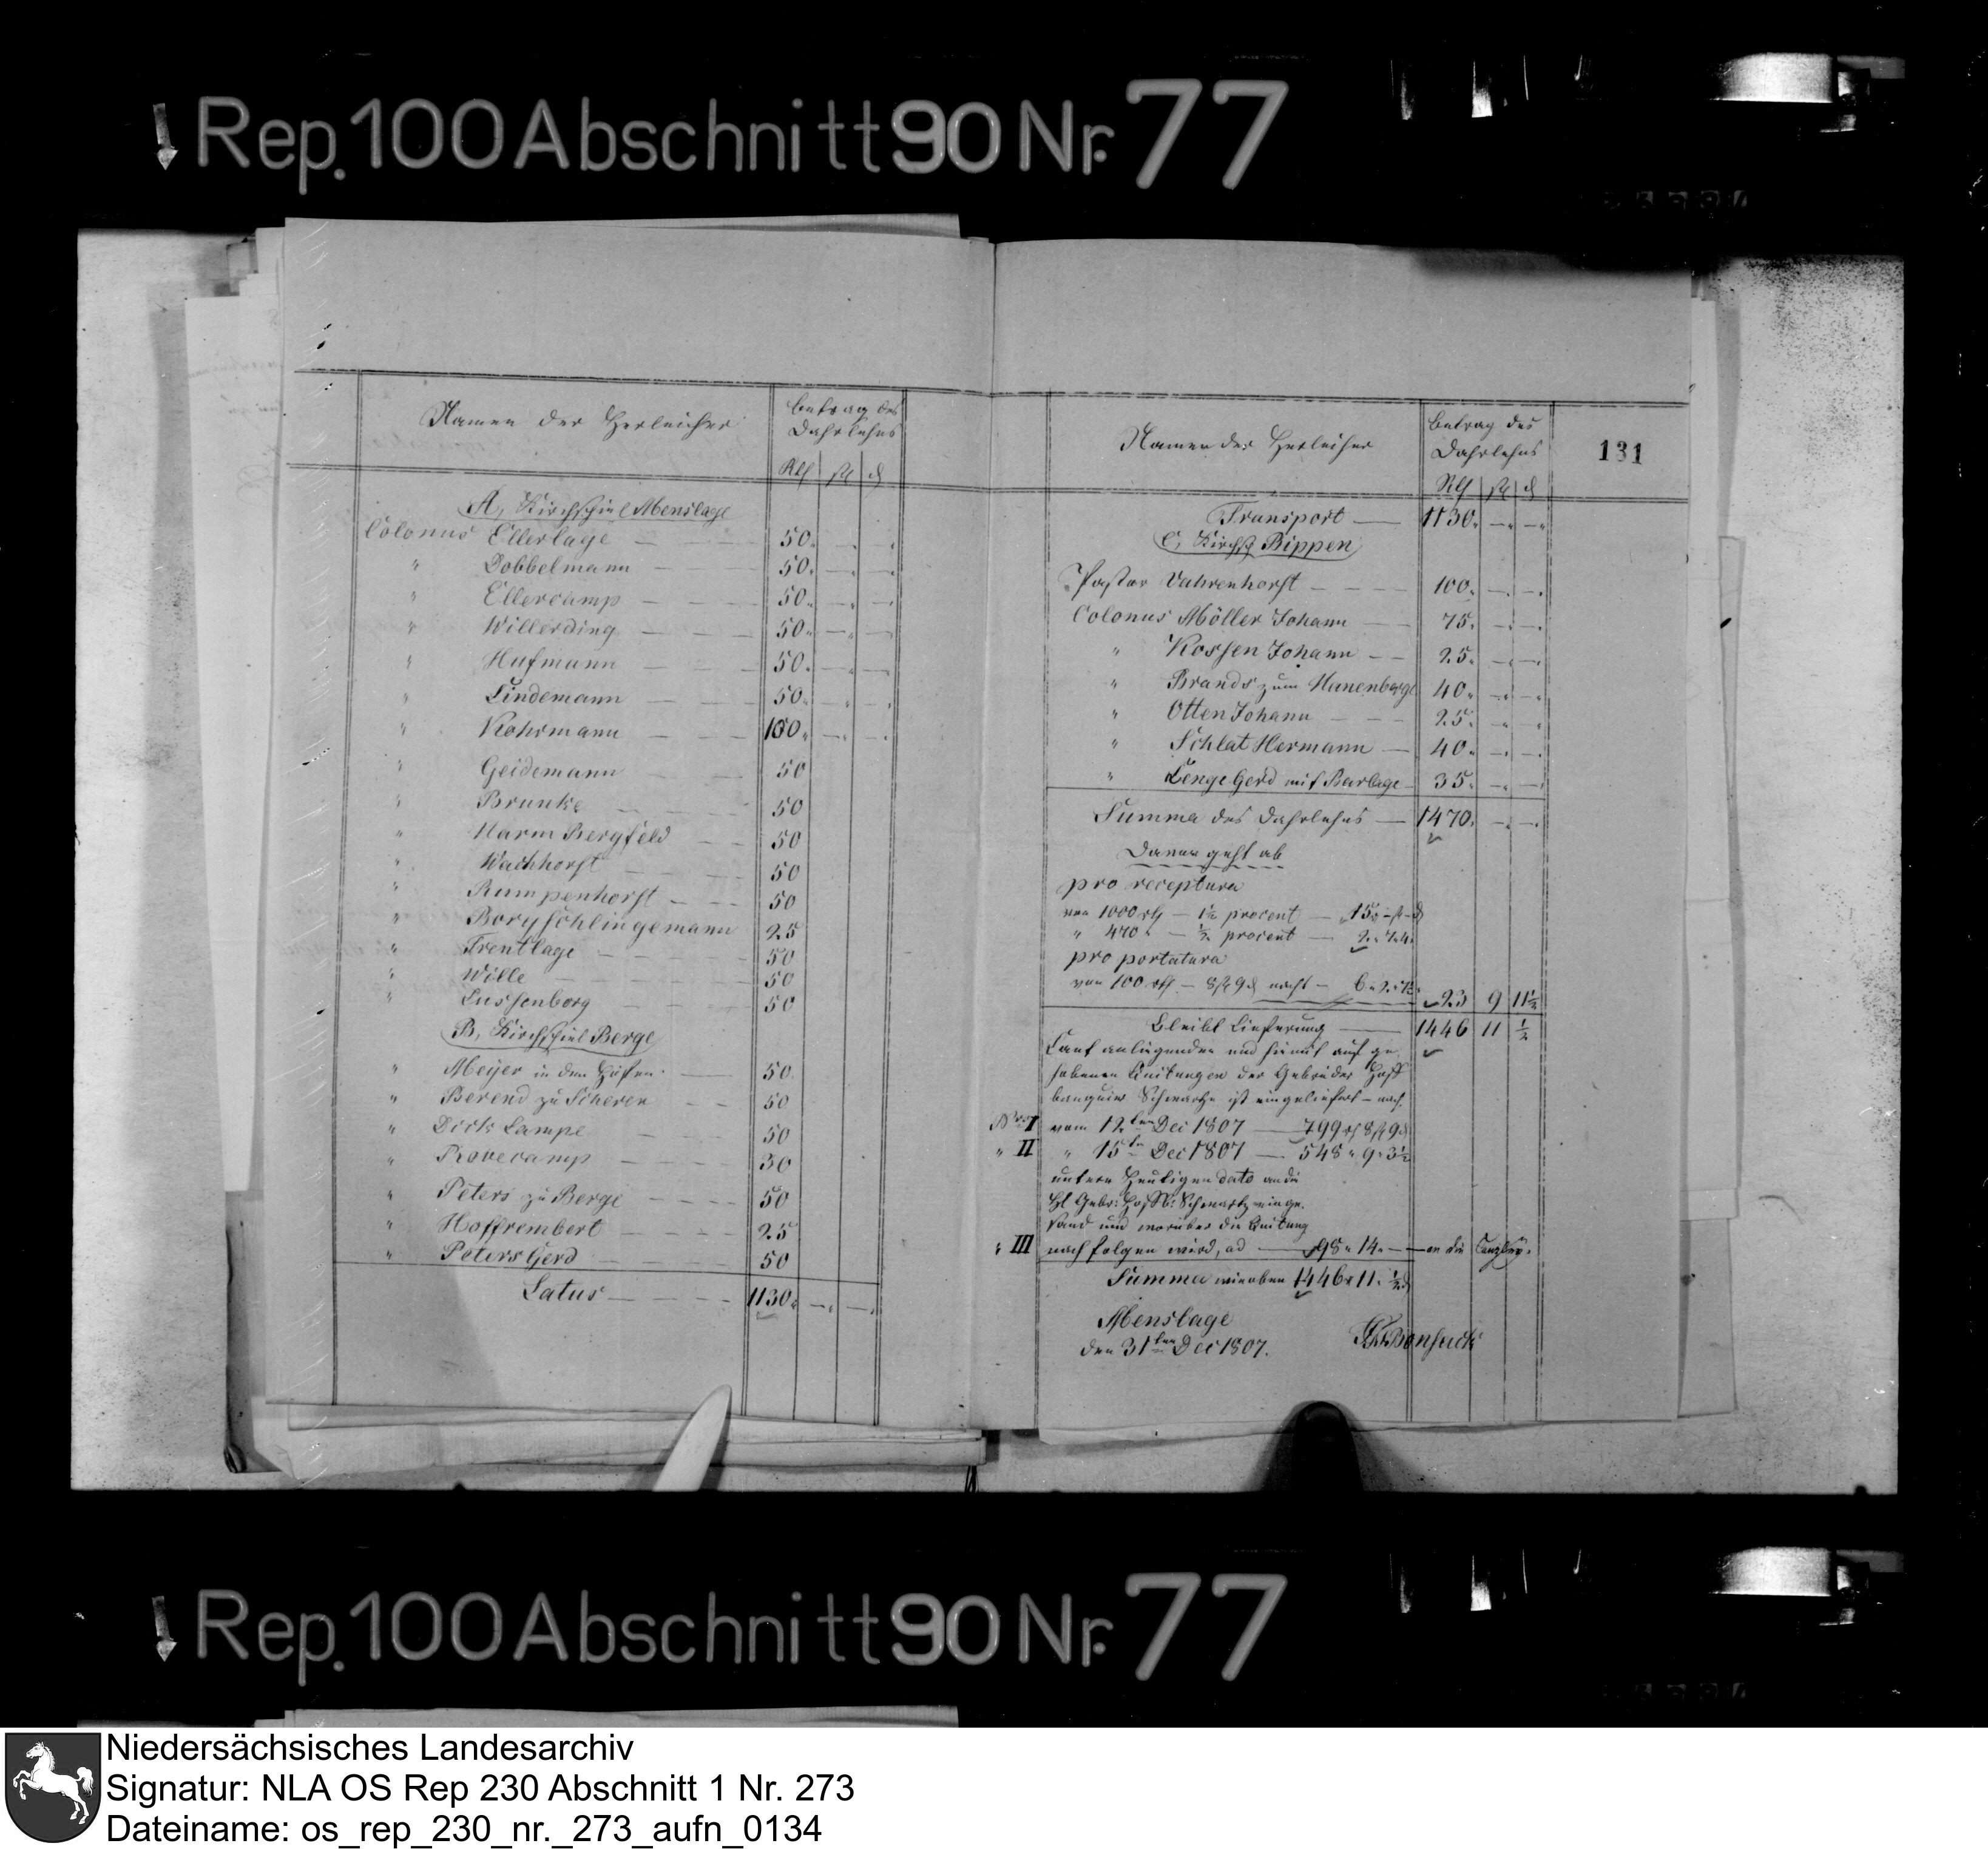 Rep. 100 Abschnitt 90 Nr. 77
Namen der Herleiher
Betrag des
Dahrlehns
Rthlr ß d
A, Kirchspiel Menslage
Colonus Ellerlage — 50. — —
" Dobbelmann — 50. — —
" Ellercamp — 50. — —
" Willerding — 50. — —
" Hufmann — 50. — —
" Lindemann — 50. — —
" Kohrmann — 100. — —
" Geidemann — 50
" Brunke — 50
" Harm Bergfeld — 50
" Wachhorst — 50
" Rumpenhorst — 50
" Borgschlingemann 25
" Trentlage — 50
" Wille — 50
" Lussenborg — 50
B, Kirchspiel Berge
" Meyer in den Höfen — 50
" Berend zu Scheren — 50
" Dirk Lampe — 50
" Rovecamp — 30
" Peters zu Berge — 50
" Hoffrembert — 25
" Peters Gerd — 50
Latus — 1130. — —
Namen der Herleiher
Betrag des
Dahrlehns
131
Rthlr ß d
Transport — 1130. — —
C, Kirchsp Bippen
Pastor Vahrenhorst — 100. — —
Colonus Möller Johann — 75. — —
" Kossen Johann — 25. — —
" Brands zum Hanenberge 40. — —
" Otten Johann — 25. — —
" Schlat Hermann — 40. — —
" Lenge Gerd auf Barlage 35. — —
Summa des Dahrlehns — 1470. — —
Davon geht ab
pro receptura
von 1000 rth — 1½ procent — 15 " — ß — d
" 470 " — ½ procent — 2 " 7 " 4
pro portatura
von 100 rth — 8 ß 9 d macht — 6 " 2 " 7½
23 9 11½
Bleibt Lieferung — 1446 11 ½
Laut anliegenden und hiemit auf ge
hobenen Quitungen der Gebrüder Hof
banquier Schwartze ist eingeliefert — nach
Nro I vom 12ten Dec 1807 — 799 rth 8 ß 9 d
" II " 15ten Dec 1807 — 548 " 9 " 3½
untern Heutigen dato an die
H Gebr: Hof B: Schwartz einge
sand und worüber die Quitung
" III nach folgen wird, ad — 98 " 14 " — an die Canzley.
Summa wie oben 1446 " 11 " ½ d
Menslage
den 31ten Dec 1807.
Bonsack
Rep. 100 Abschnitt 90 Nr. 77
Niedersächsisches Landesarchiv
Signatur: NLA OS Rep 230 Abschnitt 1 Nr. 273
Dateiname: os_rep_230_nr._273_aufn_0134